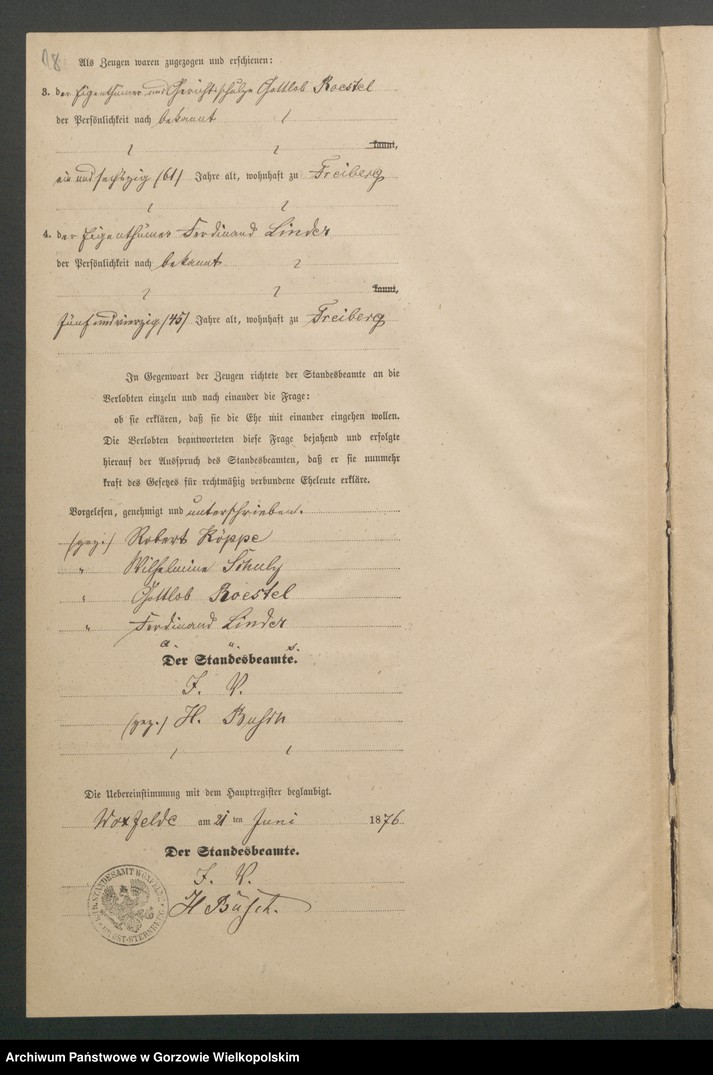 18
Als Zeugen waren zugezogen und erschienen:
3. der Eigenthümer und Gerichtsschulze Gottlob Roestel
der Persönlichkeit nach bekannt
kannt,
ein und sechszig (61) Jahre alt, wohnhaft zu Freiberg
4. der Eigenthümer Ferdinand Linder
der Persönlichkeit nach bekannt
kannt,
fünf und vierzig (45) Jahre alt, wohnhaft zu Freiberg
In Gegenwart der Zeugen richtete der Standesbeamte an die
Verlobten einzeln und nach einander die Frage:
ob sie erklären, daß sie die Ehe mit einander eingehen wollen.
Die Verlobten beantworteten diese Frage bejahend und erfolgte
hierauf der Ausspruch des Standesbeamten, daß er sie nunmehr
kraft des Gesetzes für rechtmäßig verbundene Eheleute erkläre.
Vorgelesen, genehmigt und unterschrieben.
(gez.) Robert Köppe
" Wilhelmine Schulz
" Gottlob Roestel
" Ferdinand Linder
a. u. s.
Der Standesbeamte.
J. V.
(gez.) H. Busch
Die Uebereinstimmung mit dem Hauptregister beglaubigt.
Woxfelde am 21 ten Juni 1876.
Der Standesbeamte.
J. V.
H Busch.
STANDESAMT WOXFELDE
KR. OST-STERNBERG
Archiwum Państwowe w Gorzowie Wielkopolskim